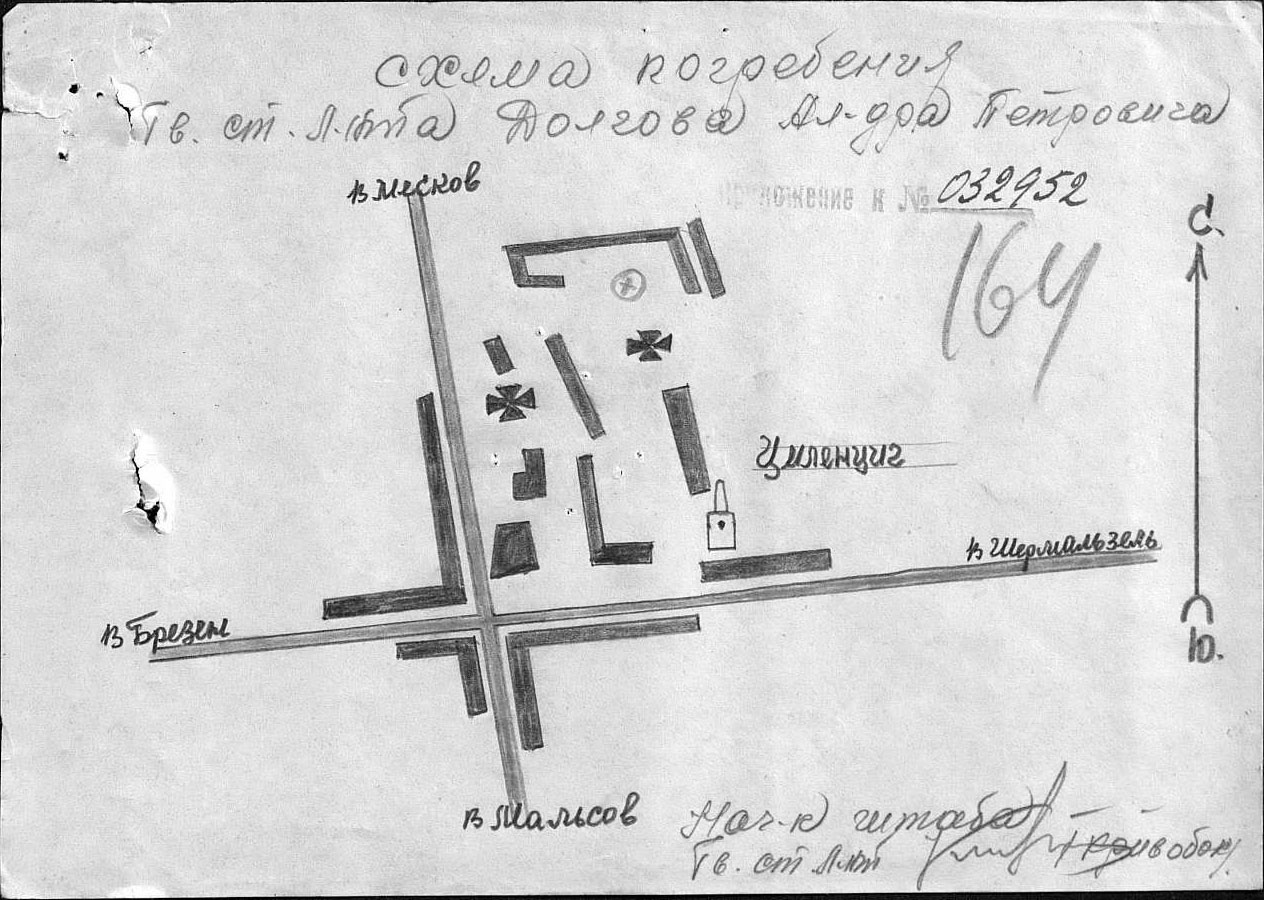 схема погребения
Гв. ст. л-нта Долгова Ал-дра Петровича
в Месков
Приложение к № 032952
С.
164
Циленциг
в Шермальзель
в Брезен
Ю.
в Мальсов
Нач-к штаба
Гв. ст л-нт /Кривобок/